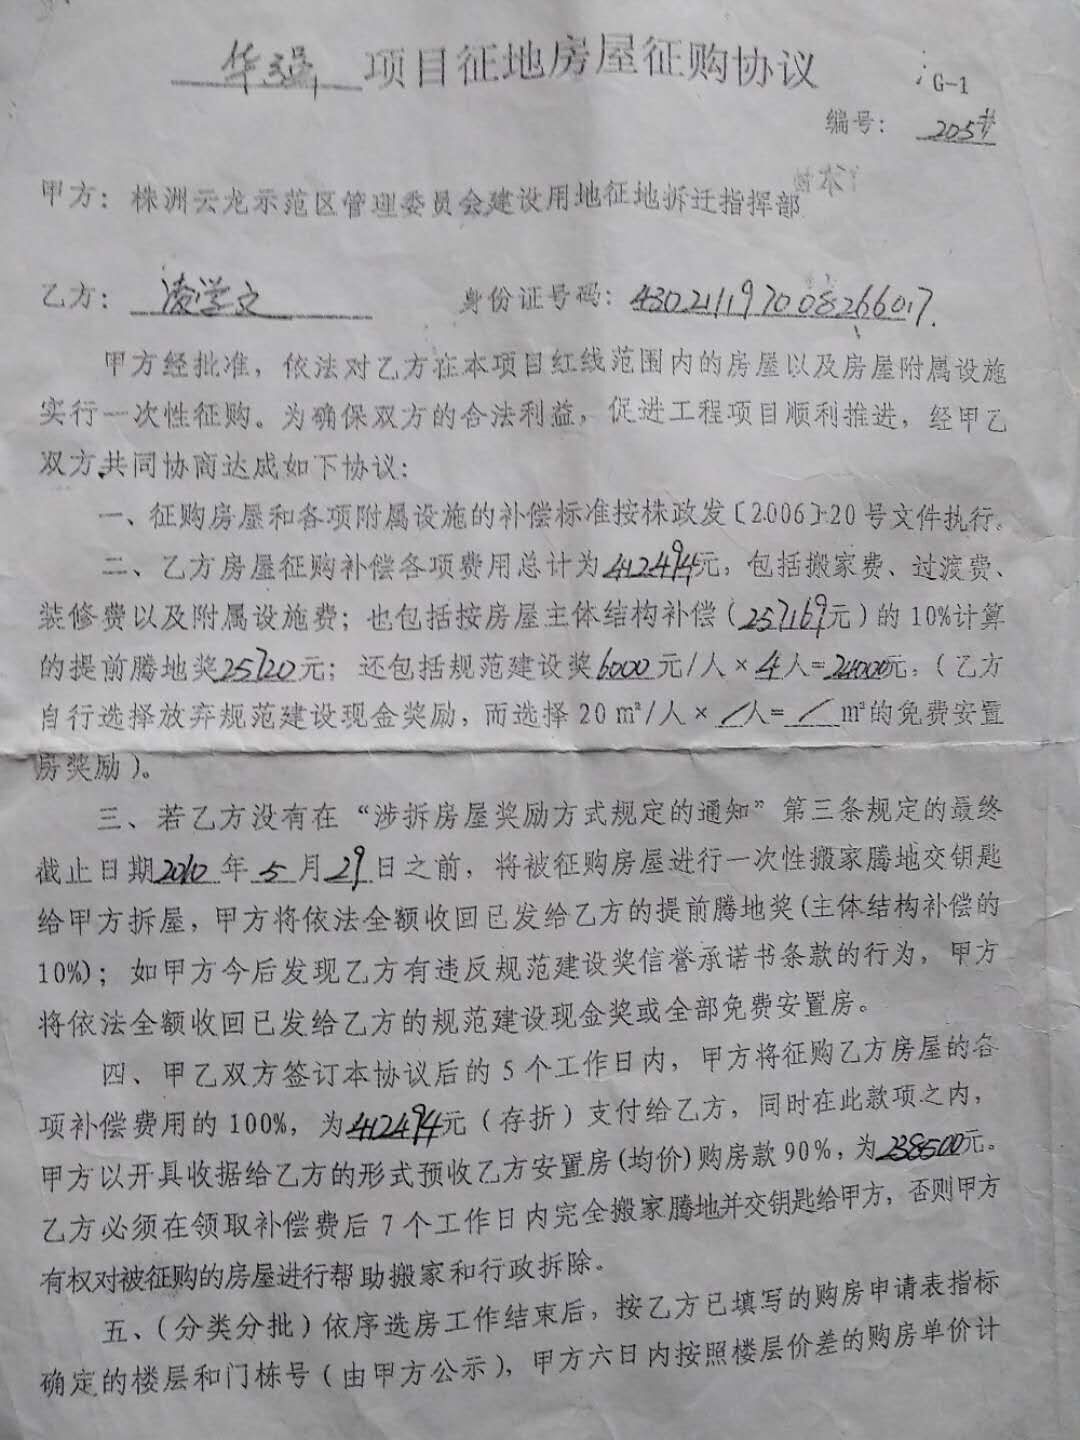 华强 项目征地房屋征购协议
G-1
编号: 205#
甲方: 株洲云龙示范区管理委员会建设用地征地拆迁指挥部
乙方: 凌学文 身份证号码: 430211197008266017.
甲方经批准, 依法对乙方在本项目红线范围内的房屋以及房屋附属设施
实行一次性征购。为确保双方的合法利益, 促进工程项目顺利推进, 经甲乙
双方共同协商达成如下协议:
一、征购房屋和各项附属设施的补偿标准按株政发〔2006〕20号文件执行。
二、乙方房屋征购补偿各项费用总计为412494元, 包括搬家费、过渡费、
装修费以及附属设施费; 也包括按房屋主体结构补偿(257169元)的10%计算
的提前腾地奖25720元; 还包括规范建设奖6000元/人×4人=24000元。(乙方
自行选择放弃规范建设现金奖励, 而选择20㎡/人×/人=/㎡的免费安置
房奖励)。
三、若乙方没有在“涉拆房屋奖励方式规定的通知”第三条规定的最终
截止日期2010年5月29日之前, 将被征购房屋进行一次性搬家腾地交钥匙
给甲方拆屋, 甲方将依法全额收回已发给乙方的提前腾地奖(主体结构补偿的
10%); 如甲方今后发现乙方有违反规范建设奖信誉承诺书条款的行为, 甲方
将依法全额收回已发给乙方的规范建设现金奖或全部免费安置房。
四、甲乙双方签订本协议后的5个工作日内, 甲方将征购乙方房屋的各
项补偿费用的100%, 为412494元(存折)支付给乙方, 同时在此款项之内,
甲方以开具收据给乙方的形式预收乙方安置房(均价)购房款90%, 为238500元。
乙方必须在领取补偿费后7个工作日内完全搬家腾地并交钥匙给甲方, 否则甲方
有权对被征购的房屋进行帮助搬家和行政拆除。
五、(分类分批)依序选房工作结束后, 按乙方已填写的购房申请表指标
确定的楼层和门栋号(由甲方公示), 甲方六日内按照楼层价差的购房单价计